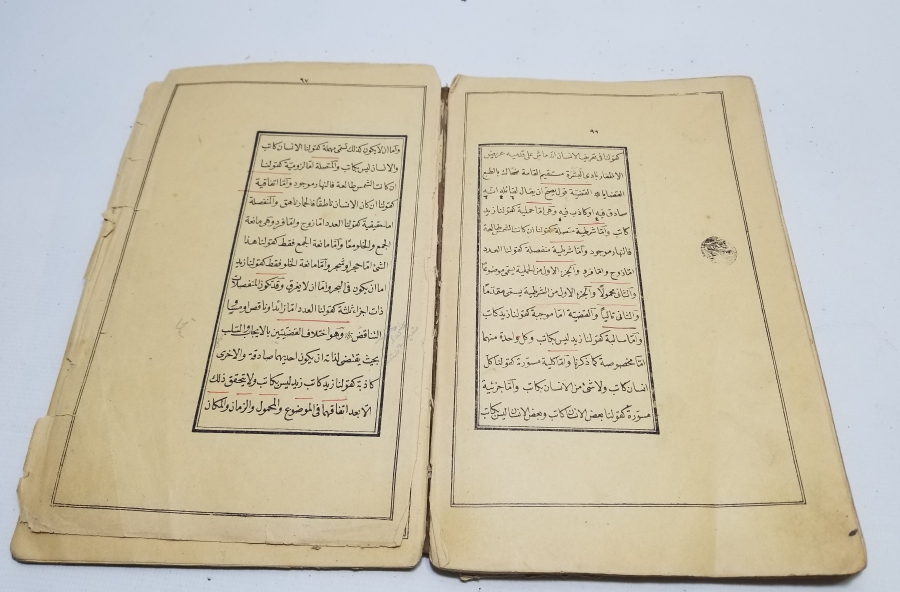 ٩٦
كقولنا فى تعريف الانسان انه ماش على قدميه عريض
الاظفار بادى البشرة مستقيم القامة ضحاك بالطبع
القضايا القضية قول يصح ان يقال لقائله انه
صادق فيه او كاذب فيه وهى اما حملية كقولنا زيد
كاتب واما شرطية متصلة كقولنا ان كانت الشمس طالعة
فالنهار موجود واما شرطية منفصلة كقولنا العدد
اما زوج واما فرد والجزء الاول من الحملية يسمى موضوعا
والثانى محمولا والجزء الاول من الشرطية يسمى مقدما
والثانى تاليا والقضية اما موجبة كقولنا زيد كاتب
واما سالبة كقولنا زيد ليس بكاتب وكل واحدة منهما
اما مخصوصة كما ذكرنا واما كلية مسورة كقولنا كل
انسان كاتب ولا شئ من الانسان بكاتب واما جزئية
مسورة كقولنا بعض الانسان كاتب وبعض الانسان ليس بكاتب
٩٧
واما ان لا يكون كذلك تسمى مهملة كقولنا الانسان كاتب
والانسان ليس بكاتب والمتصلة اما لزومية كقولنا
ان كانت الشمس طالعة فالنهار موجود واما اتفاقية
كقولنا ان كان الانسان ناطقا فالحمار ناهق والمنفصلة
اما حقيقية كقولنا العدد اما زوج واما فرد وهى مانعة
الجمع والخلو معا واما مانعة الجمع فقط كقولنا هذا
الشئ اما حجر او شجر واما مانعة الخلو فقط كقولنا زيد
اما ان يكون فى البحر واما ان لا يغرق وقد تكون المنفصلات
ذات اجزاء ثلثة كقولنا العدد اما زائد او ناقص او مساو
التناقض وهو اختلاف القضيتين بالايجاب والسلب
بحيث يقتضى لذاته ان يكون احديهما صادقة والاخرى
كاذبة كقولنا زيد كاتب زيد ليس بكاتب ولا يتحقق ذلك
الا بعد اتفاقهما فى الموضوع والمحمول والزمان والمكان